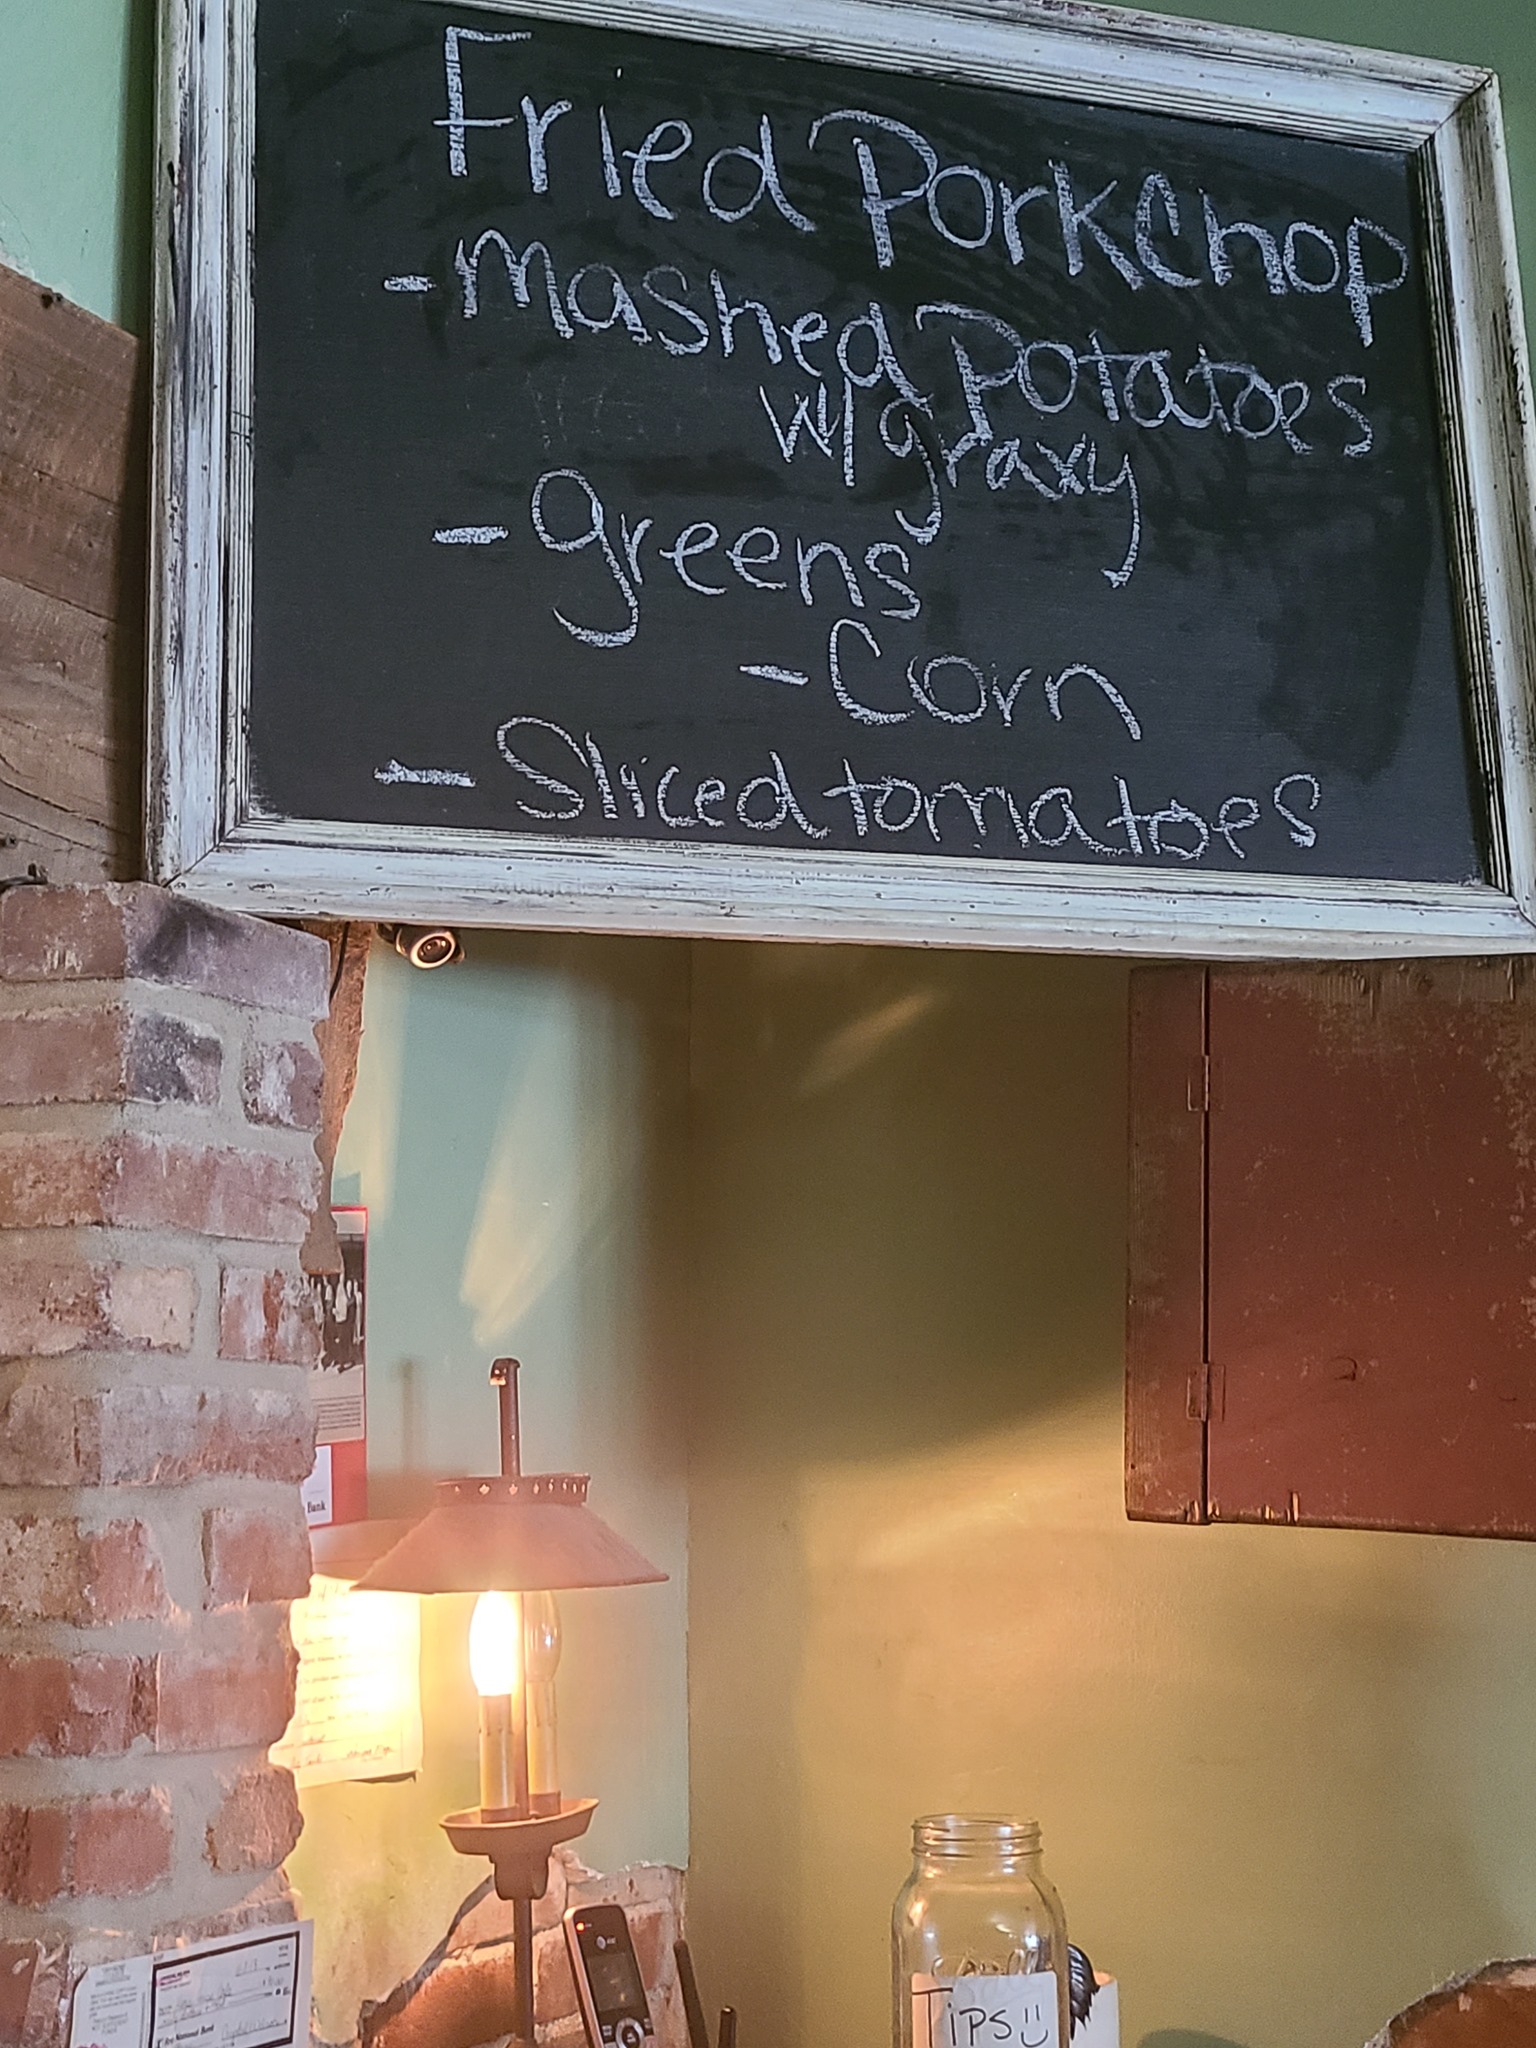 Fried PorkChop
- mashed Potatoes
w/ graxy
- greens
- Corn
- Sliced tomatoes
Bank
TIPS